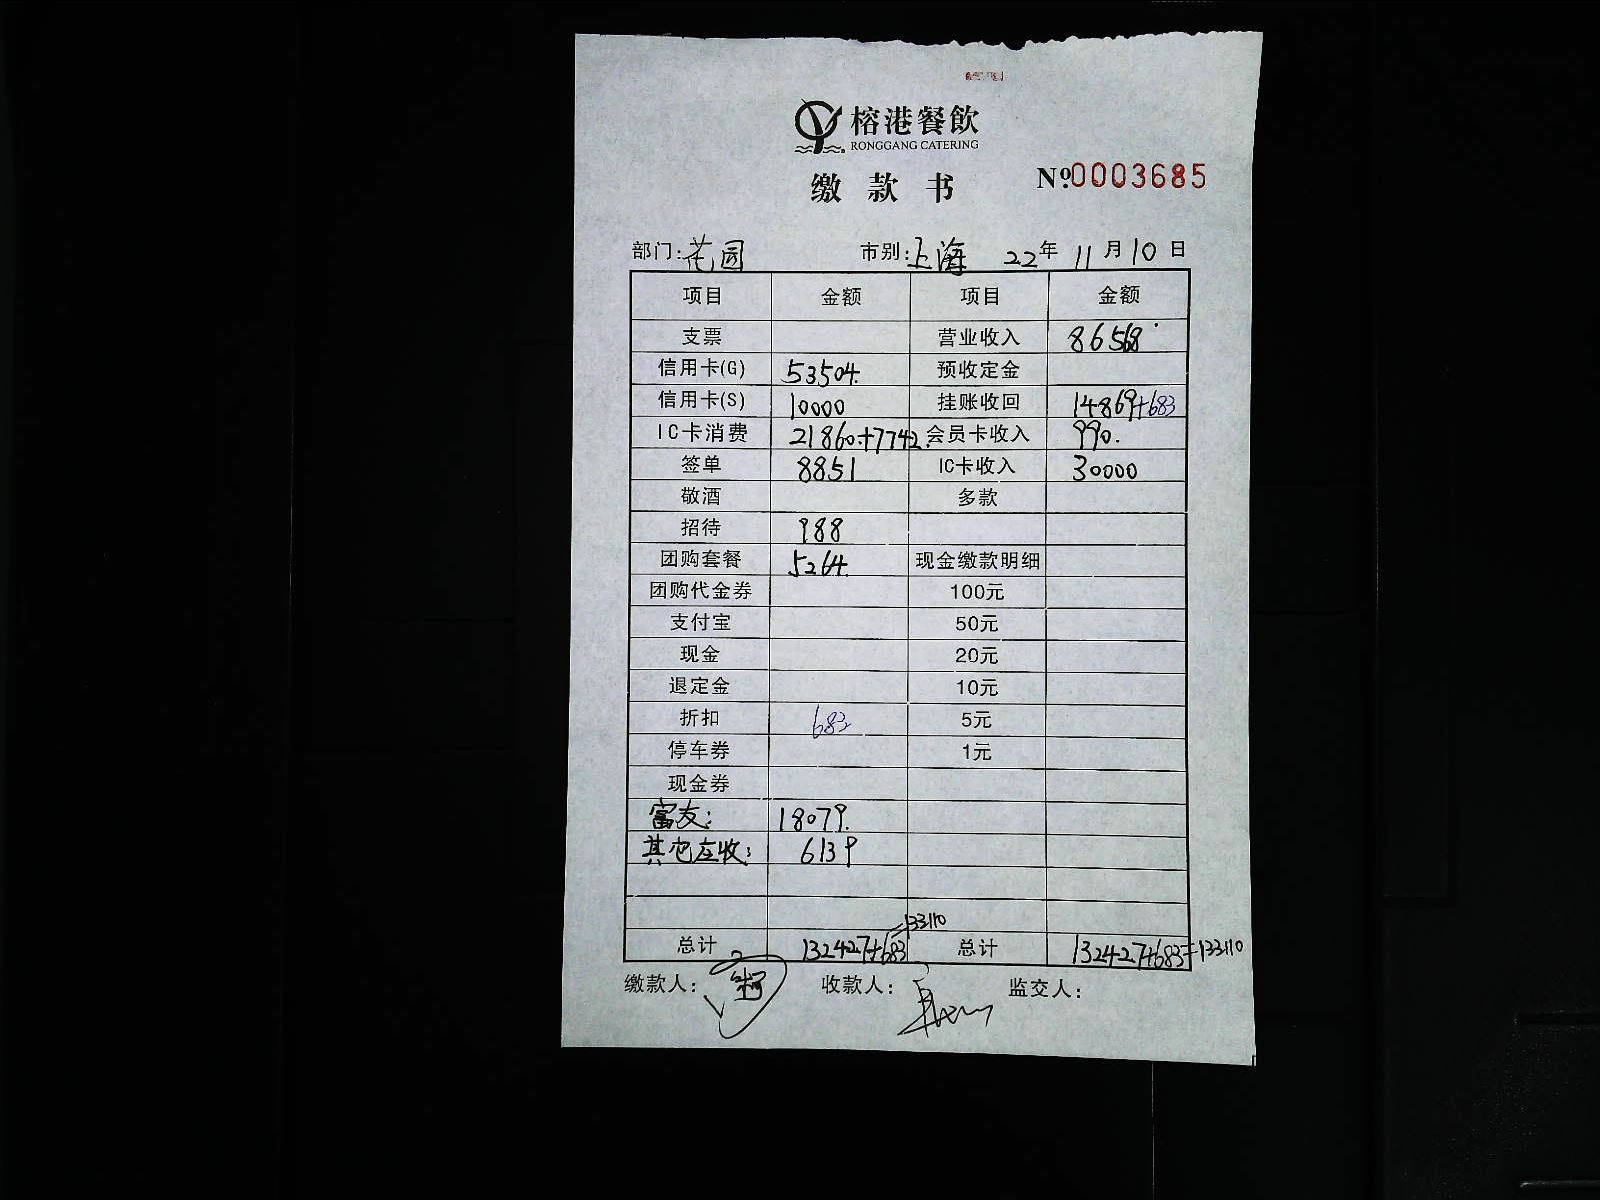 榕港餐飲
RONGGANG CATERING
缴款书 №0003685
部门:花园 市别:上海 22年11月10日
项目 金额 项目 金额
支票 营业收入 86568
信用卡(G) 53504. 预收定金
信用卡(S) 10000 挂账收回 14869+683
IC卡消费 21860.+7742. 会员卡收入 990.
签单 8851 IC卡收入 30000
敬酒 多款
招待 988
团购套餐 5264. 现金缴款明细
团购代金券 100元
支付宝 50元
现金 20元
退定金 10元
折扣 683 5元
停车券 1元
现金券
富友: 18079.
其它应收: 6139
总计 132427+683=133110 总计 132427+683=133110
缴款人: 收款人: 监交人: